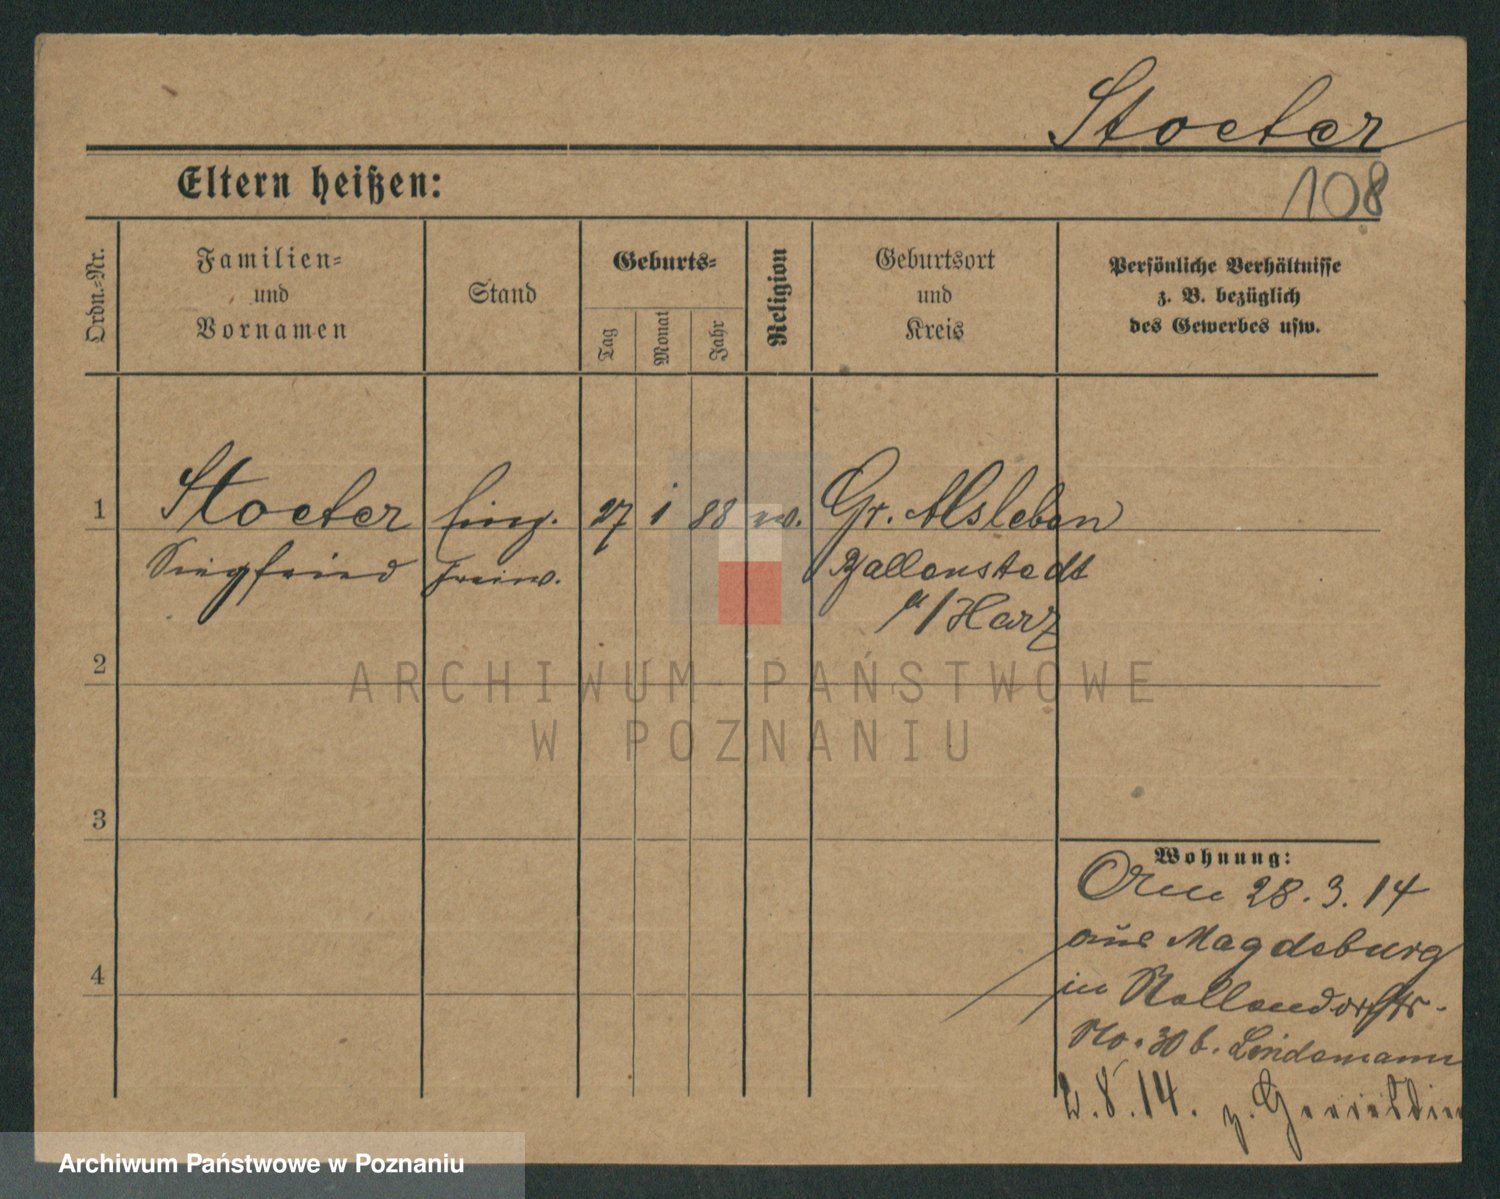 Stoeter
Eltern heißen:
108
Ordn.-Nr.
Familien-
und
Vornamen
Stand
Geburts-
Tag
Monat
Jahr
Religion
Geburtsort
und
Kreis
Persönliche Verhältnisse
z. B. bezüglich
des Gewerbes usw.
1
Stoeter
Einj.
27
1
88
Gr. Alsleben
Siegfried
Freiw.
Ballenstedt
a/Harz
2
ARCHIWUM PAŃSTWOWE
W POZNANIU
3
Wohnung:
28.3.14
aus Magdeburg
4
in Nollendorfstr.
No. 30 b. Lindemann
2.8.14. z.
Archiwum Państwowe w Poznaniu